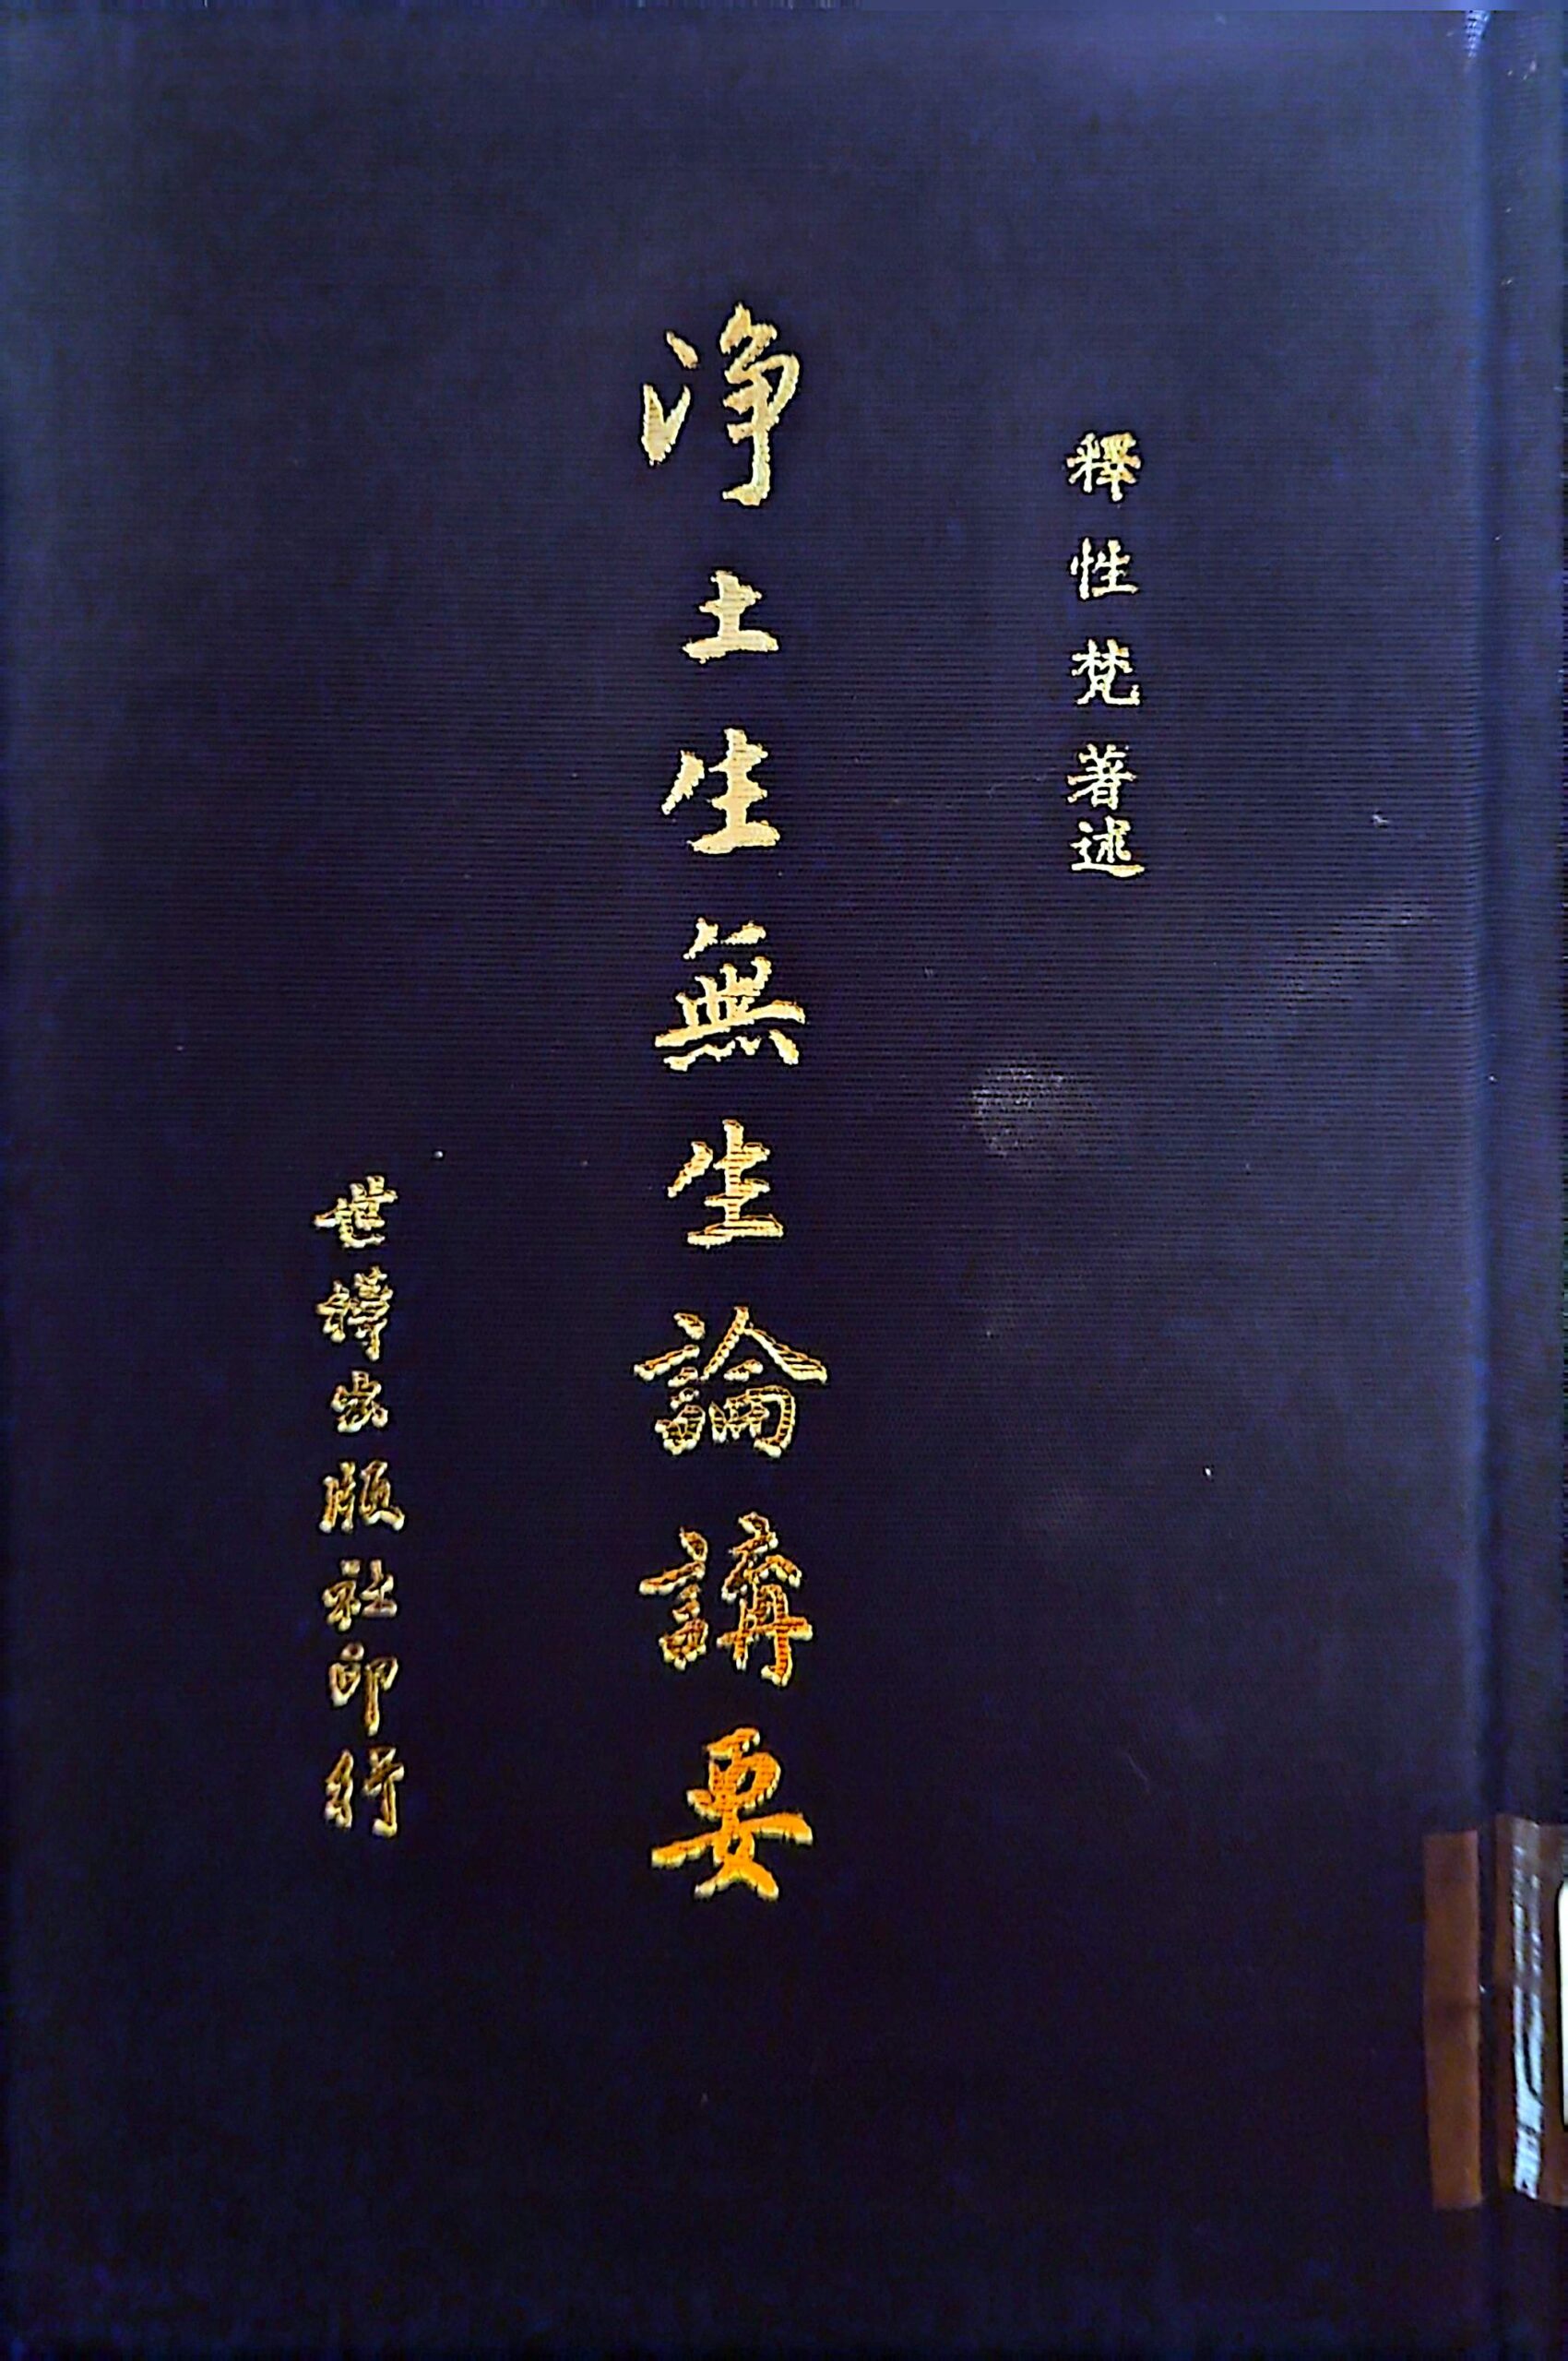 釋性梵著述
淨土生無生論講要
世樺出版社印行